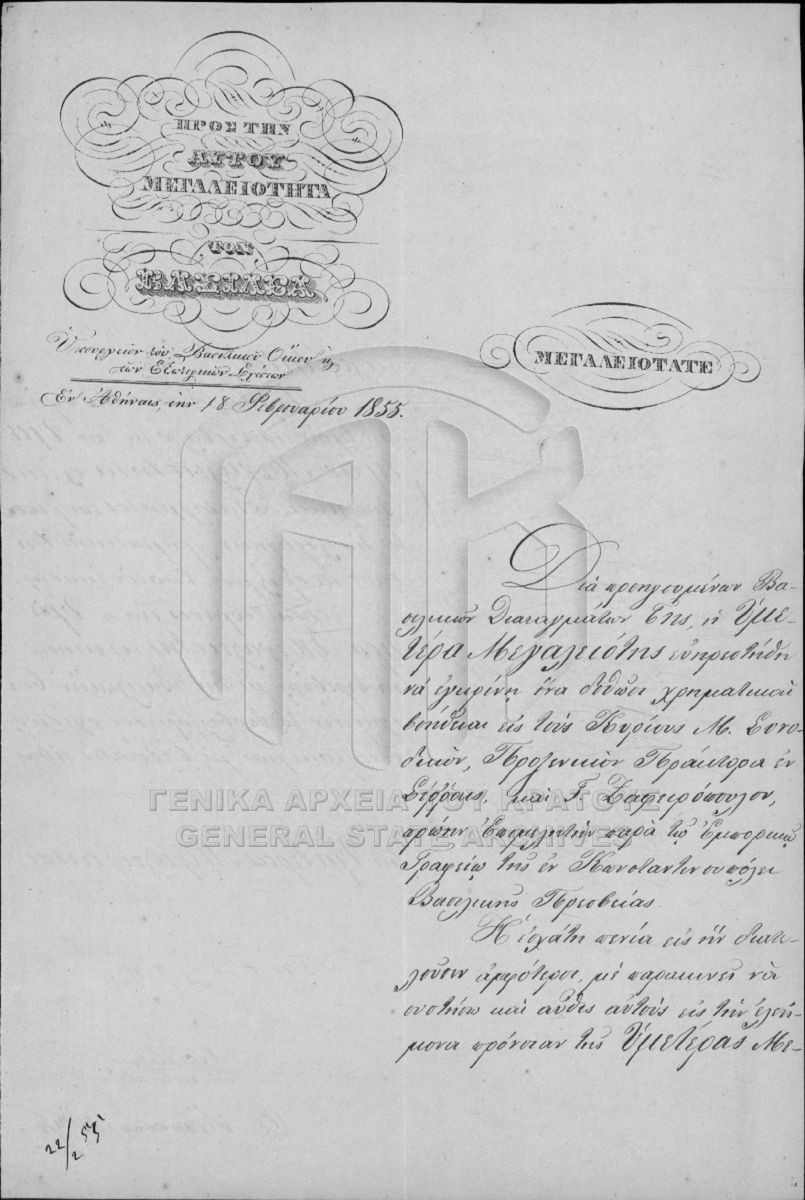 ΠΡΟΣ ΤΗΝ
ΑΥΤΟΥ
ΜΕΓΑΛΕΙΟΤΗΤΑ
ΤΟΝ
ΒΑΣΙΛΕΑ
Ὑπουργεῖον τοῦ Βασιλικοῦ Οἴκου κ
τῶν Ἐξωτερικῶν Σχέσεων
Ἐν Ἀθήναις, τὴν 18 Φεβρουαρίου 1855.
ΜΕΓΑΛΕΙΟΤΑΤΕ
Διὰ προηγουμένων Βα-
σιλικῶν Διαταγμάτων Της, ἡ Ὑμε-
τέρα Μεγαλειότης εὐηρεστήθη
νὰ ἐγκρίνῃ ἵνα δοθῶσι χρηματικαὶ
βοήθειαι εἰς τοὺς Κυρίους Μ. Συνο-
δικὸν, Προξενικὸν Πράκτορα ἐν
Σέῤῥαις, καὶ Γ. Ζαφειρόπουλον,
πρώην Ἐπιμελητὴν παρὰ τῷ Ἐμπορικῷ
Γραφείῳ τῆς ἐν Κωνσταντινουπόλει
Βασιλικῆς Πρεσβείας.
Ἡ ἐσχάτη πενία εἰς ἣν διατε-
λοῦσιν ἀμφότεροι, μὲ παρακινεῖ νὰ
συστήσω καὶ αὖθις αὐτοὺς εἰς τὴν ἐλεή-
μονα πρόνοιαν τῆς Ὑμετέρας Με-
22/2 55
ΓΕΝΙΚΑ ΑΡΧΕΙΑ ΤΟΥ ΚΡΑΤΟΥΣ
GENERAL STATE ARCHIVES